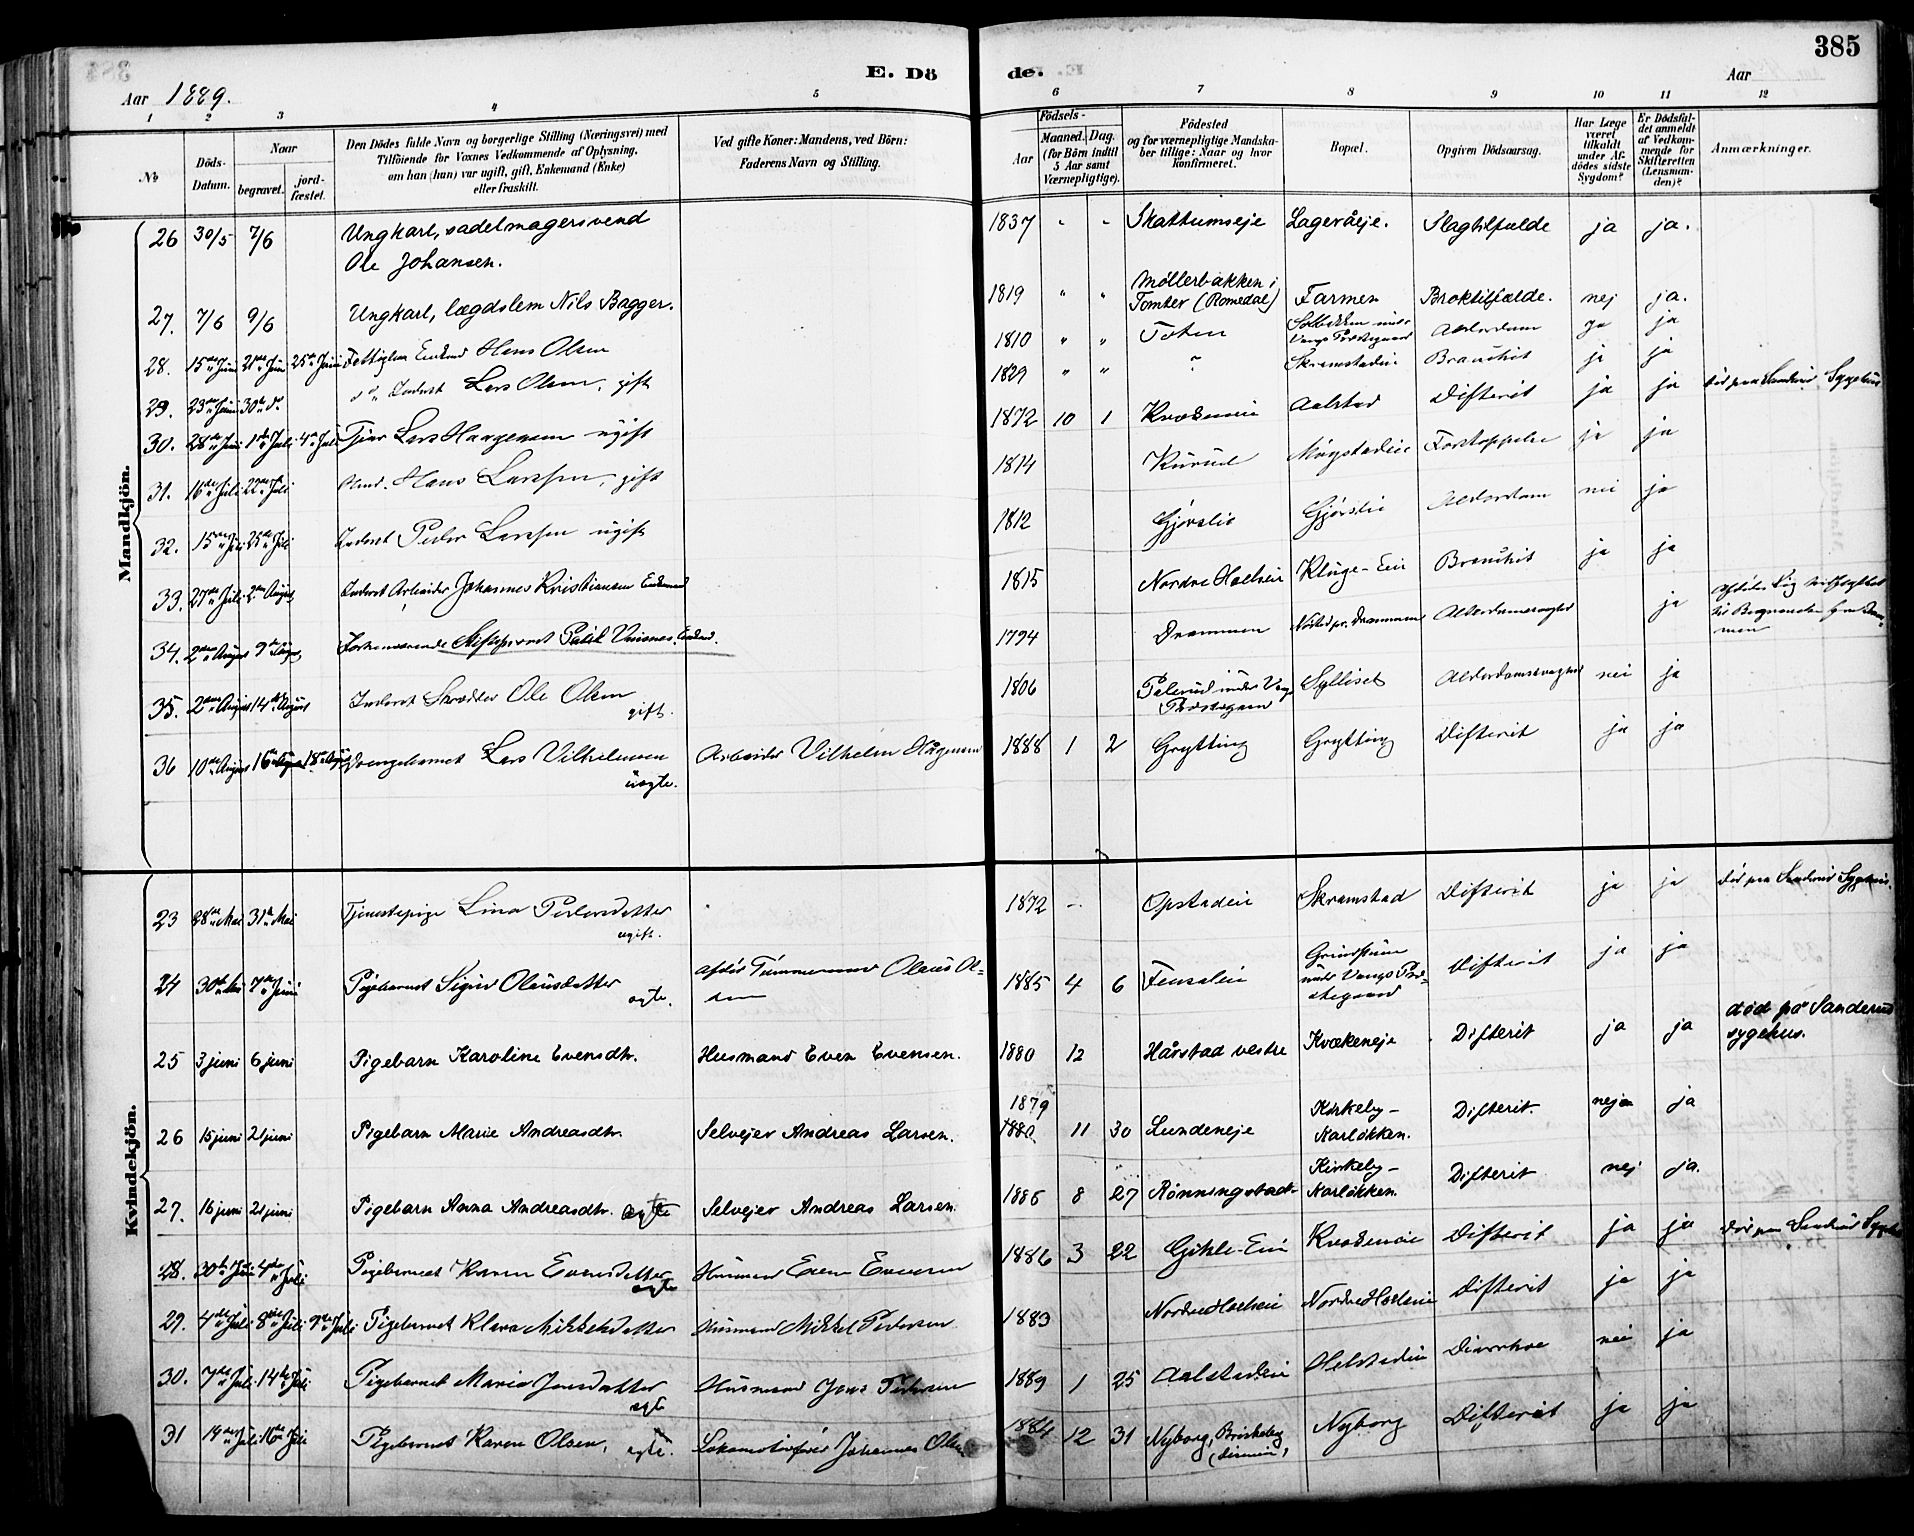 385
E. Dö de.
Aar 1889.
Aar
1 2 3 4 5 6 7 8 9 10 11 12
No
Döds-Datum.
Naar
begravet.
jord-fæstet.
Den Dödes fulde Navn og borgerlige Stilling (Næringsvei) med
Tilföiende for Voxnes Vedkommende af Oplysning,
om han (hun) var ugift, gift, Enkemand (Enke)
eller fraskilt.
Ved gifte Koner: Mandens, ved Börn:
Faderens Navn og Stilling.
Födsels-
Aar
Maaned. Dag.
(for Börn indtil
5 Aar samt
Værnepligtige).
Födested
og for værnepligtige Mandska-
ber tillige: Naar og hvor
konfirmeret.
Bopæl.
Opgiven Dödsaarsag.
Har Læge
været
tilkaldt
under Af-
dödes sidste
Sygdom?
Er Dödsfal-
det anmeldt
af Vedkom-
mende for
Skifteretten
(Lensman-
den)?
Anmærkninger.
Mandkjön.
26 30/5 7/6 Ungkarl, sadelmagersvend
Ole Johansen. 1837 - - Skattumseje Lageråeje. Slagtilfælde ja ja.
27. 7/6 9/6 Ungkarl, lægdslem Nils Bagger. 1819 " " Møllerbakken i
Tomter (Romedal) Farmen Broktilfælde. nej ja.
28. 15de Juni 21de Juni 25de Juni Fattiglem Enkemd Hans Olsen 1810 " " Toten Solbakken under
Vangs Præstegaard Alderdom ja ja
29. 23de Juni 30te do do Inderst Lars Olsen, gift 1829 " " " Skramstadeie Bronchit ja ja
30. 28de Juni 1ste Juli 4de Juli Tjener Lars Haagensen ugift 1872 10 1 Kvækeneie Aalstad Difterit ja ja død paa Sanderud Sygehus
31. 16de Juli 22de Juli Hans Larssen, gift 1814 Kurud Forstoppelse ja ja
32. 15de Juli 25de Juli Inderst Peder Larssen ugift 1812 Gjørslie Gjørslie Alderdom nei ja
33. 27de Juli 2den August Inderst Arbeider Johannes Kristiansen Enkemand 1815 Nordre Hoelseie Kluge-Eie Bronchit ja ja
34. 2den August 9de August Forhenværende Stiftsprovst Enkemd. 1794 Drammen Drammen Alderdomssvaghed ja
35. 2den August 14de August Inderst Skrædder Ole Olsen
gift. 1806 Pelerud under Vangs
Præstegaard Sylliset Alderdomssvaghed nei ja
36 10de August 16de August 18de August Drengebarnet Lars Vilhelmsen
uægte. Arbeider Vilhelm Hågensen 1888 1 2 Grytting Grytting Difterit ja ja
Kvindekjön.
23 28de Mai 31te Mai Tjenestepige Lina Pedersdatter
ugift. 1872 - Opstadeie Skramstad Difterit ja ja død paa Sanderud Sygehus.
24 30te Mai 7de Juni Pigebarnet Sigrid Olausdatter
ægte. afdøde Tømmermand Olaus Ol-
sen 1885 4 6 Finsaleie
under Vangs Præ-
stegaard Difterit ja ja
25 3 juni 6 juni Pigebarn Karoline Evensdtr. Husmand Even Evensen. 1880 12 Hårstad vestre Kvækeneje Difterit ja ja død på Sanderud
sygehus.
26 15 juni 21 juni Pigebarn Marie Andreasdtr. Selvejer Andreas Larsen. 1879
1880 11 30 Lundeneje Kirkeby-
Karløkken. Difterit. nej ja
27. 16 juni 21 juni Pigebarn Anna Andreasdtr. ægte Selvejer Andreas Larsen. 1885 8 27 Rønningstad- Kirkeby-
Karløkken. Difterit nej ja.
28. 30te Juni 4de Juli Pigebarnet Karen Evensdatter
ægte Husmand Even Evensen 1886 3 22 Gihle-Eie Kvækeneie Difterit ja ja død paa Sanderud Sygehus
29. 4de Juli 8de Juli 9de Juli Pigebarnet Klara Mikkelsdatter Husmand Mikkel Pedersen 1883 Nordre Hoelseie Nordre Hoelseie Difterit ja ja
30. 7de Juli 14de Juli Pigebarnet Maria Jensdatter
ægte Husmand Jens Pedersen 1889 1 25 Aalstadeie Diarrhoe nei ja
31 14de Juli 16de Juli Pigebarnet Karen Olsen, ægte. Lokomotivfører Johannes Olsen 1884 12 31 Nyborg, Briskeby Nyborg Difterit ja ja